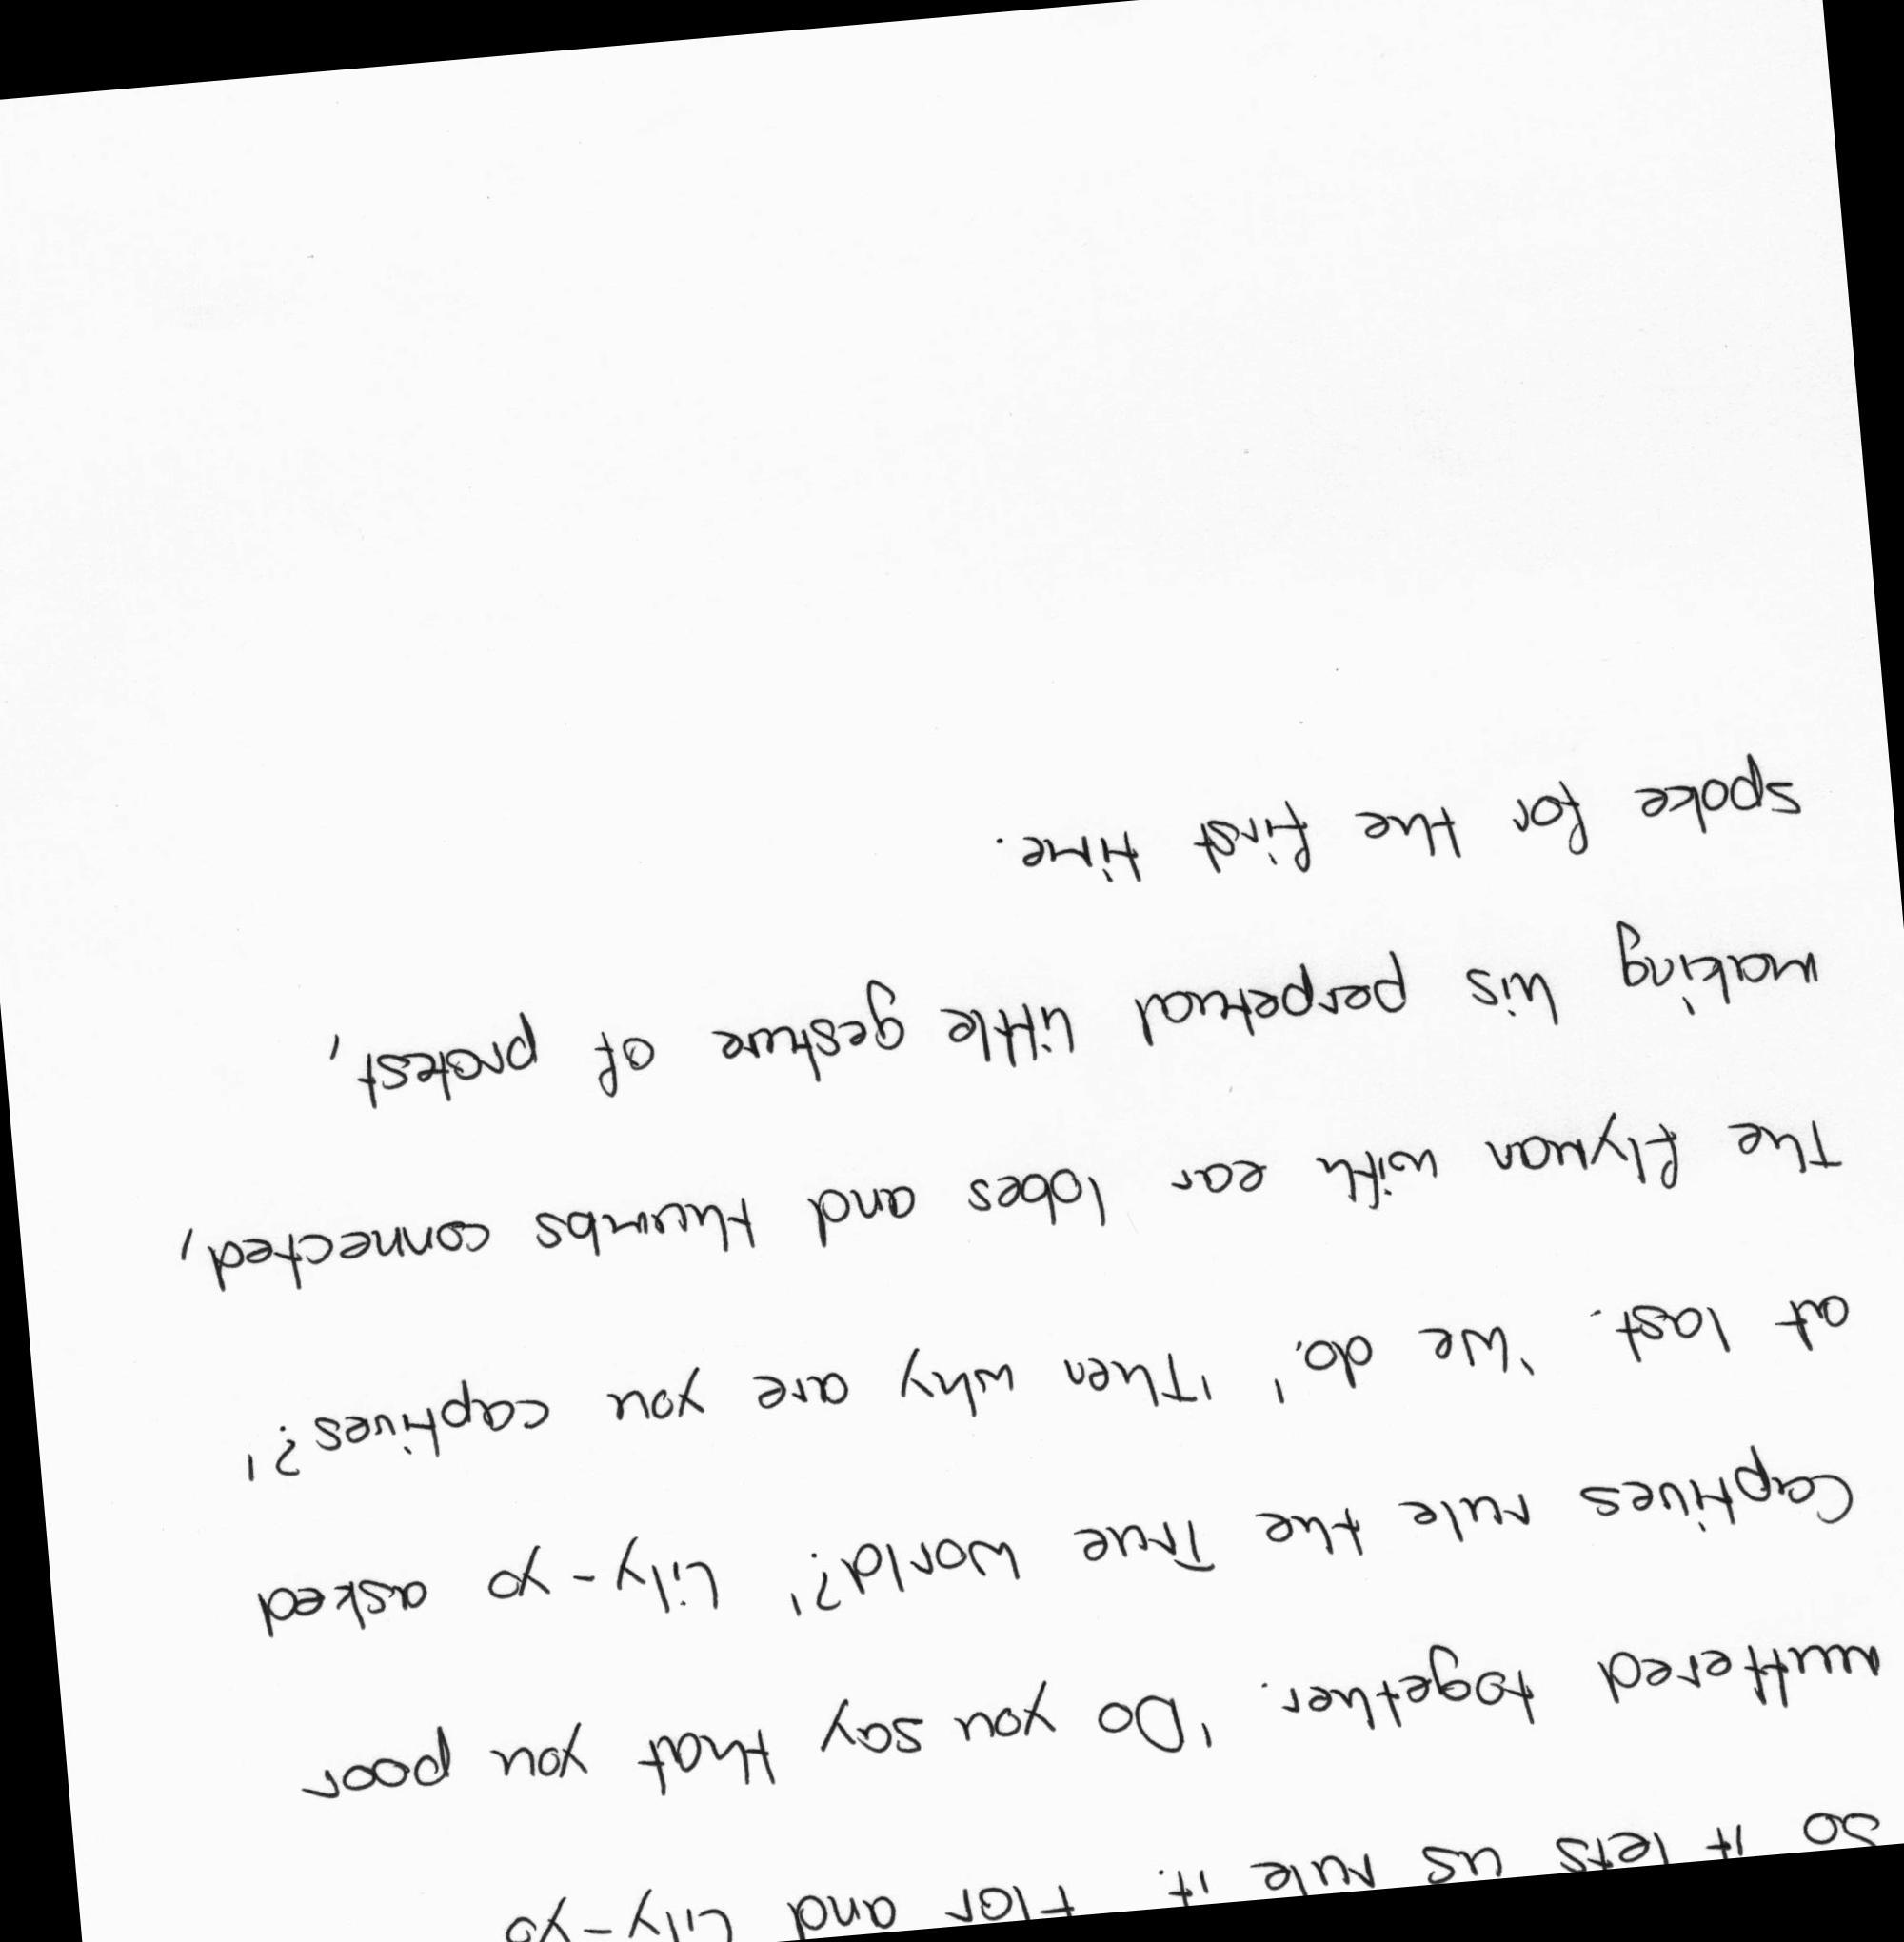 so it lets us rule it. Flor and Lily-yo
muttered together. 'Do you say that you poor
Captives rule the True World?' Lily-yo asked
at last. 'We do.' 'Then why are you captives?'
The flyman with ear lobes and thumbs connected,
making his perpetual little gesture of protest,
spoke for the first time.